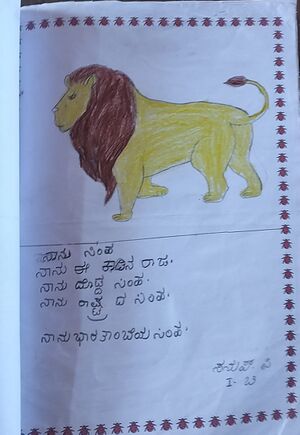 ನಾನು ಸಿಂಹ
ನಾನು ಈ ಕಾಡಿನ ರಾಜ.
ನಾನು ದೊಡ್ಡ ಸಿಂಹ.
ನಾನು ರಾಷ್ಟ್ರದ ಸಿಂಹ.
ನಾನು ಭಾರತಾಂಬೆಯ ಸಿಂಹ.
I-ಬಿ